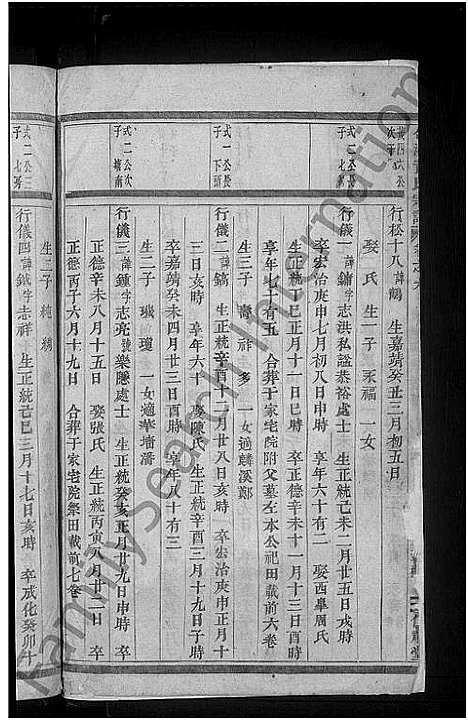 行松十八諱鷳 生嘉靖癸丑三月初五日
娶 氏 生一子 永福 一女
式二公長
子 七房
行儀一諱鏞字志洪私謚恭裕處士 生正統己未二月廿五日戌時
卒宏治庚申七月初八日申時 享年六十有二 娶西皋周氏
生正統己巳正月十一日巳時 卒正德辛未十一月十三日酉時
享年七十有五 合葬于家宅院附父墓左本公祀田載前六卷
生三子 壽 祥 多 一女適麟溪鄭
式一公長
子 下頭
行儀二諱鎬 生正統辛酉十一月廿八日亥時 卒宏治庚申正月十
三日亥時 享年六十 娶陳氏 生正統辛酉三月十九日子時
卒嘉靖癸未四月廿三日酉時 享年八十有三
生二子 璣 瓊 一女適華墻潘
式二公次
子 塘南
行儀三諱鍾字志亮號樂隱處士 生正統癸亥正月廿九日申時 卒
正德辛未八月十五日 娶張氏 生正統丙寅八月廿二日 卒
正德丙子六月十九日 合葬于家宅院祭田載前七卷
生二子 純 綢
式二公三
子 七房
行儀四諱鉞字志祥 生正統己巳三月十七日亥時 卒成化癸卯十
FamilySearch International